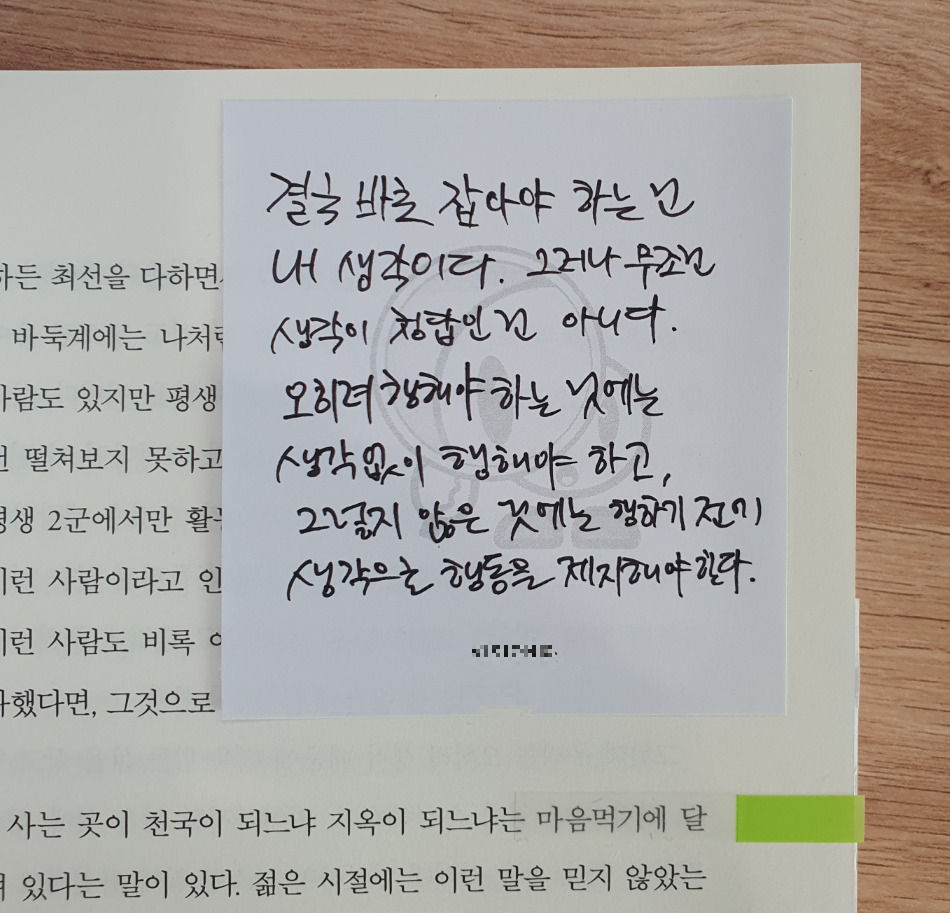 결국 바로 잡아야 하는 건
내 생각이다. 그러나 무조건
생각이 정답인 건 아니다.
오히려 행해야 하는 것에는
생각없이 행해야 하고,
그렇지 않은 것에는 행하기 전에
생각으로 행동을 제지해야한다.
하든 최선을 다하면
바둑계에는 나처럼
사람도 있지만 평생
떨쳐보지 못하고
평생 2군에서만
이런 사람이라고 인
이런 사람도 비록
했다면, 그것으로
사는 곳이 천국이 되느냐 지옥이 되느냐는 마음먹기에 달
있다는 말이 있다. 젊은 시절에는 이런 말을 믿지 않았는